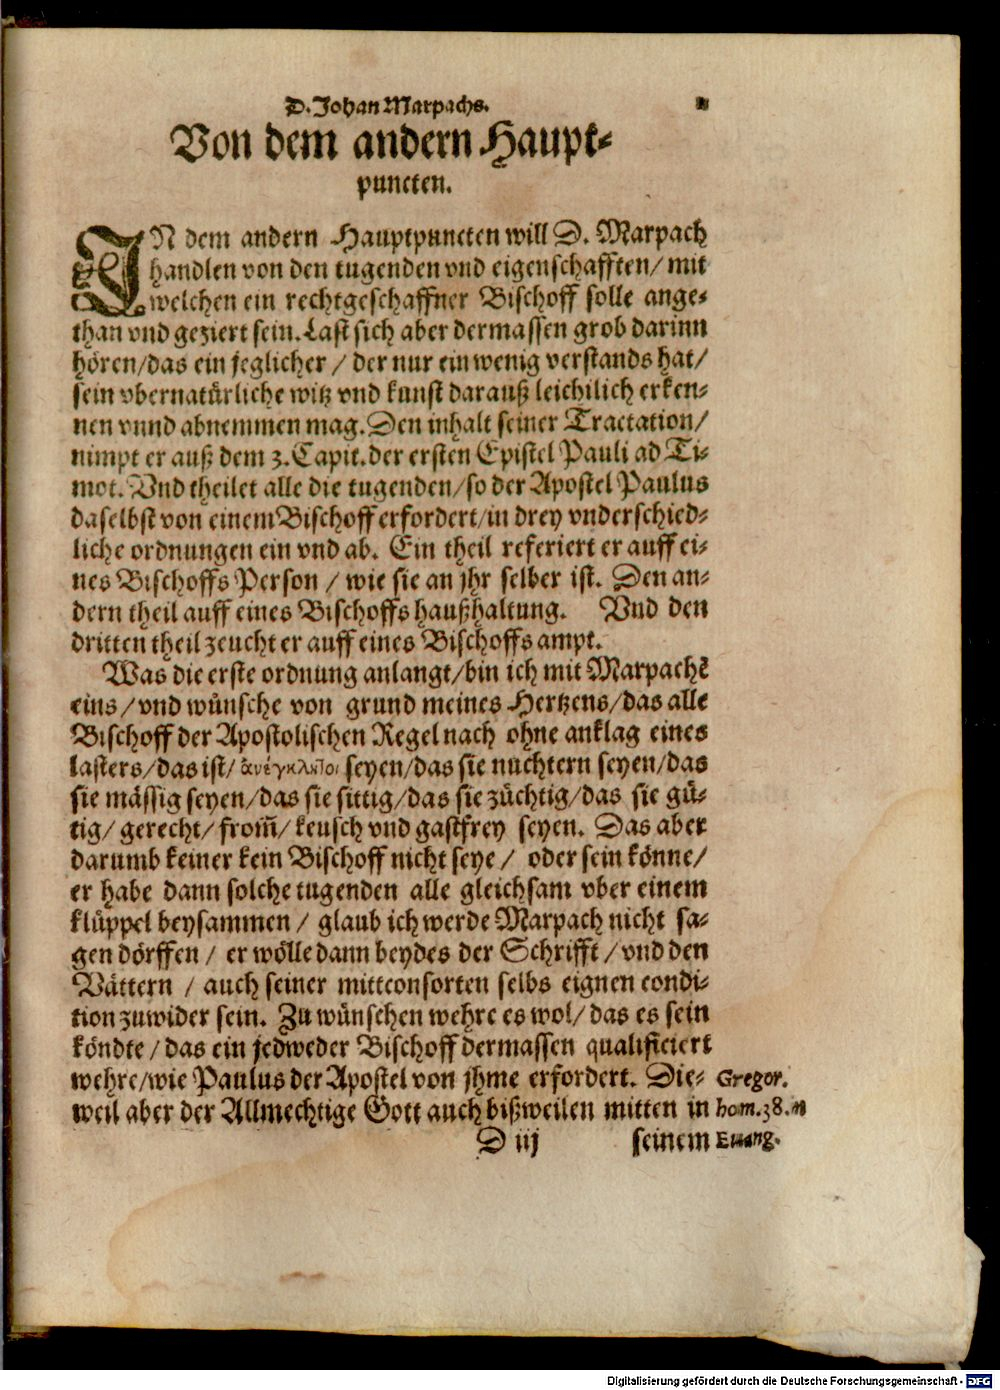 D. Johan Marpachs.
Von dem andern Haupt-
puncten.
IN dem andern Hauptpuncten will D. Marpach
handlen von den tugenden vnd eigenschafften/ mit
welchen ein rechtgeschaffner Bischoff solle ange-
than vnd geziert sein. Last sich aber dermassen grob darinn
hören/das ein jeglicher / der nur ein wenig verstands hat/
sein vbernatürliche witz vnd kunst darauß leichtlich erken-
nen vnnd abnemmen mag. Den inhalt seiner Tractation/
nimpt er auß dem 3. Capit. der ersten Epistel Pauli ad Ti-
mot. Vnd theilet alle die tugenden/so der Apostel Paulus
daselbst von einem Bischoff erfordert/in drey vnderschied-
liche ordnungen ein vnd ab. Ein theil referiert er auff ei-
nes Bischoffs Person / wie sie an jhr selber ist. Den an-
dern theil auff eines Bischoffs haußhaltung. Vnd den
dritten theil zeucht er auff eines Bischoffs ampt.
Was die erste ordnung anlangt/bin ich mit Marpachē
eins/ vnd wünsche von grund meines Hertzens/das alle
Bischoff der Apostolischen Regel nach ohne anklag eines
lasters/das ist/ ἀνέγκλητοι seyen/das sie nüchtern seyen/das
sie mässig seyen/das sie sittig/das sie züchtig/das sie gü-
tig/ gerecht/ from̃/ keusch vnd gastfrey seyen. Das aber
darumb keiner kein Bischoff nicht seye / oder sein könne/
er habe dann solche tugenden alle gleichsam vber einem
klüppel beysammen / glaub ich werde Marpach nicht sa-
gen dörffen / er wölle dann beydes der Schrifft / vnd den
Vättern / auch seiner mittconsorten selbs eignen condi-
tion zuwider sein. Zu wünschen wehre es wol/ das es sein
köndte / das ein jedweder Bischoff dermassen qualificiert
wehre/wie Paulus der Apostel von jhme erfordert. Die-
weil aber der Allmechtige Gott auch bißweilen mitten in
Gregor.
hom. 38. in
Euang.
D iij seinem
Digitalisierung gefördert durch die Deutsche Forschungsgemeinschaft - DFG